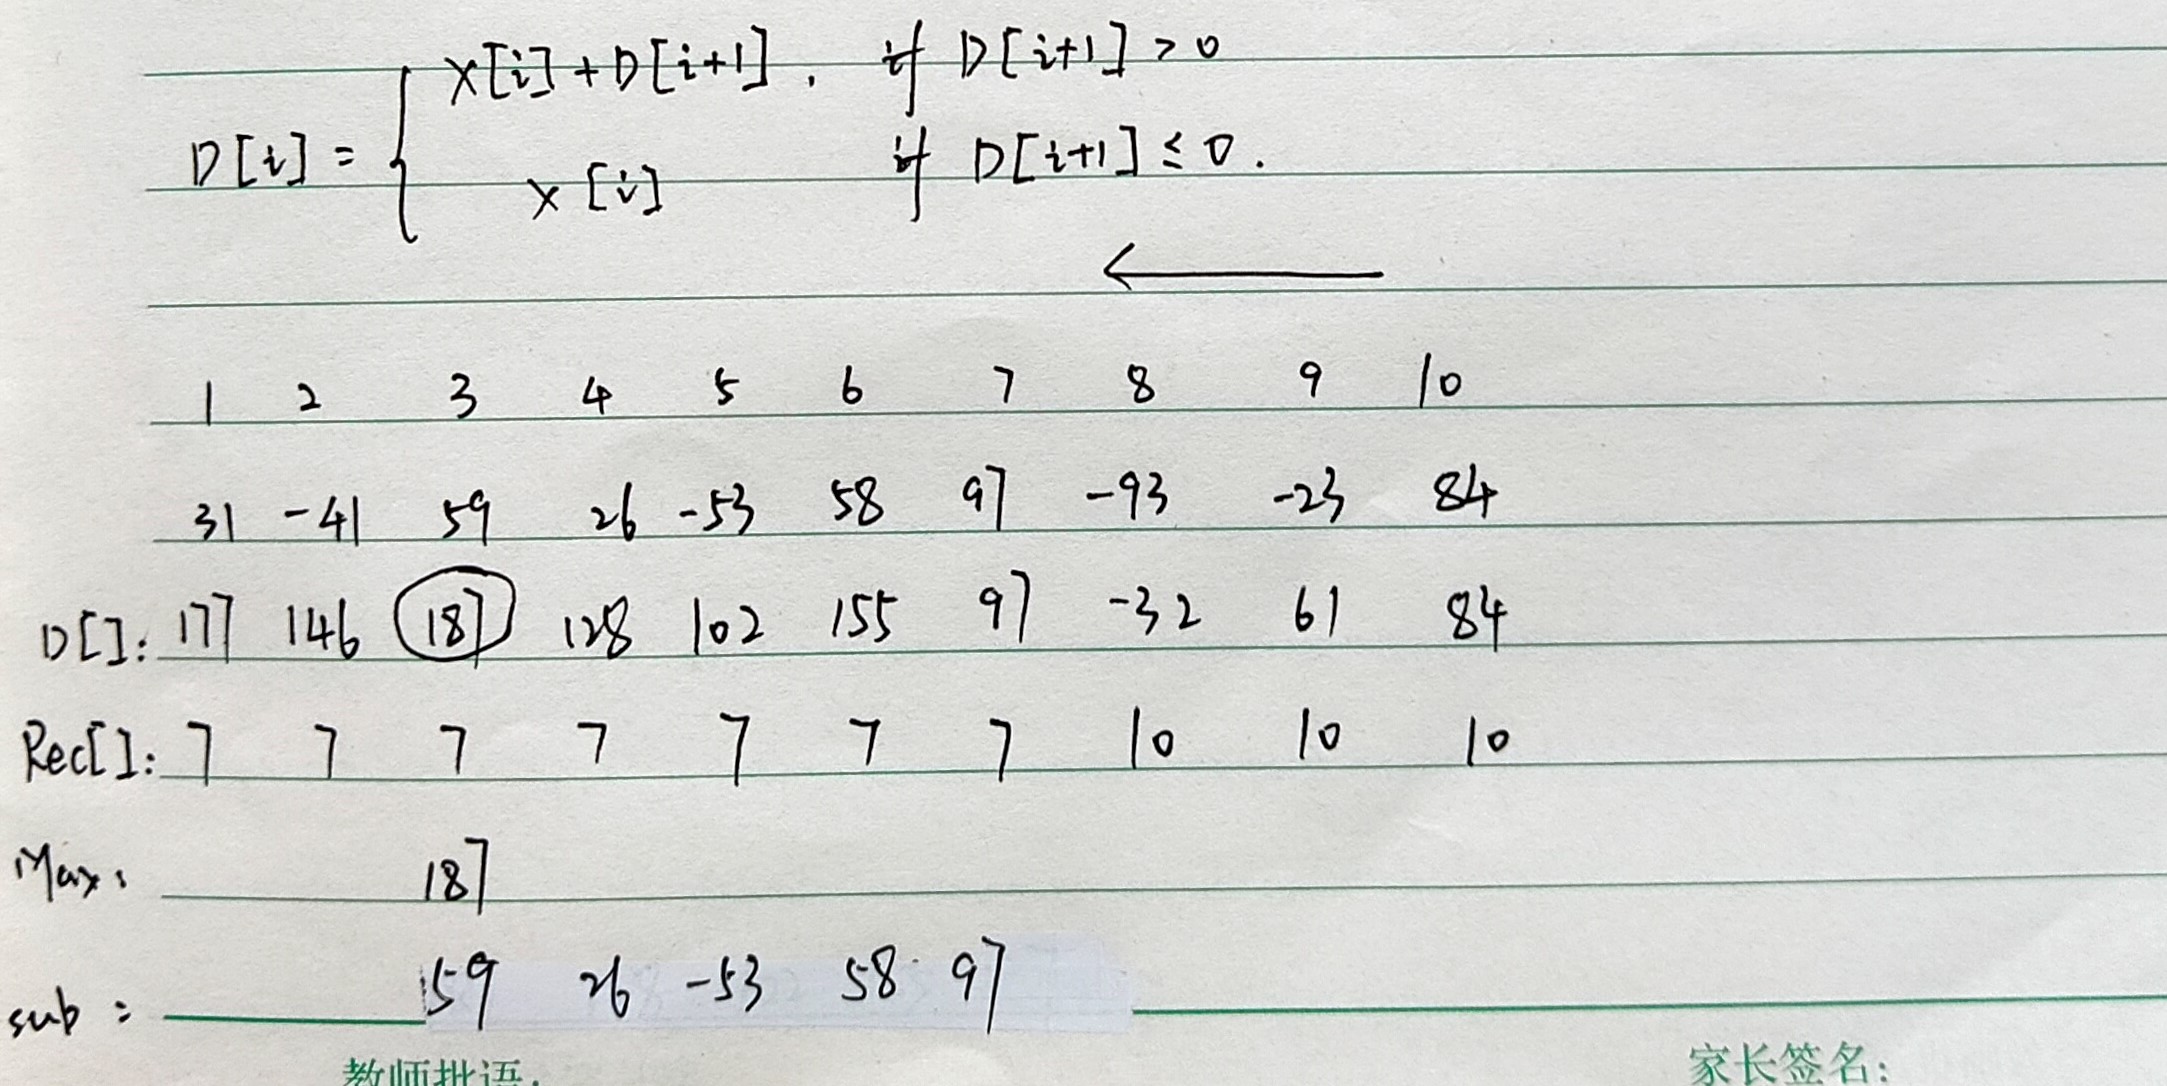 D[i] = { X[i] + D[i+1] , if D[i+1] > 0
X[i] if D[i+1] ≤ 0 .
←
1 2 3 4 5 6 7 8 9 10
31 -41 59 26 -53 58 97 -93 -23 84
D[]: 177 146 187 128 102 155 97 -32 61 84
Rec[]: 7 7 7 7 7 7 7 10 10 10
Max: 187
sub: 59 26 -53 58 97
教师批语: 家长签名: